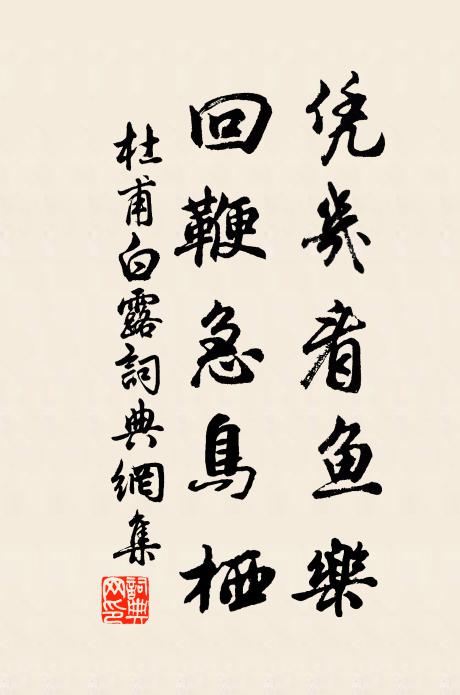 凭幾看鱼樂
回鞭急鳥栖
杜甫白露詞典網集
詞典网印